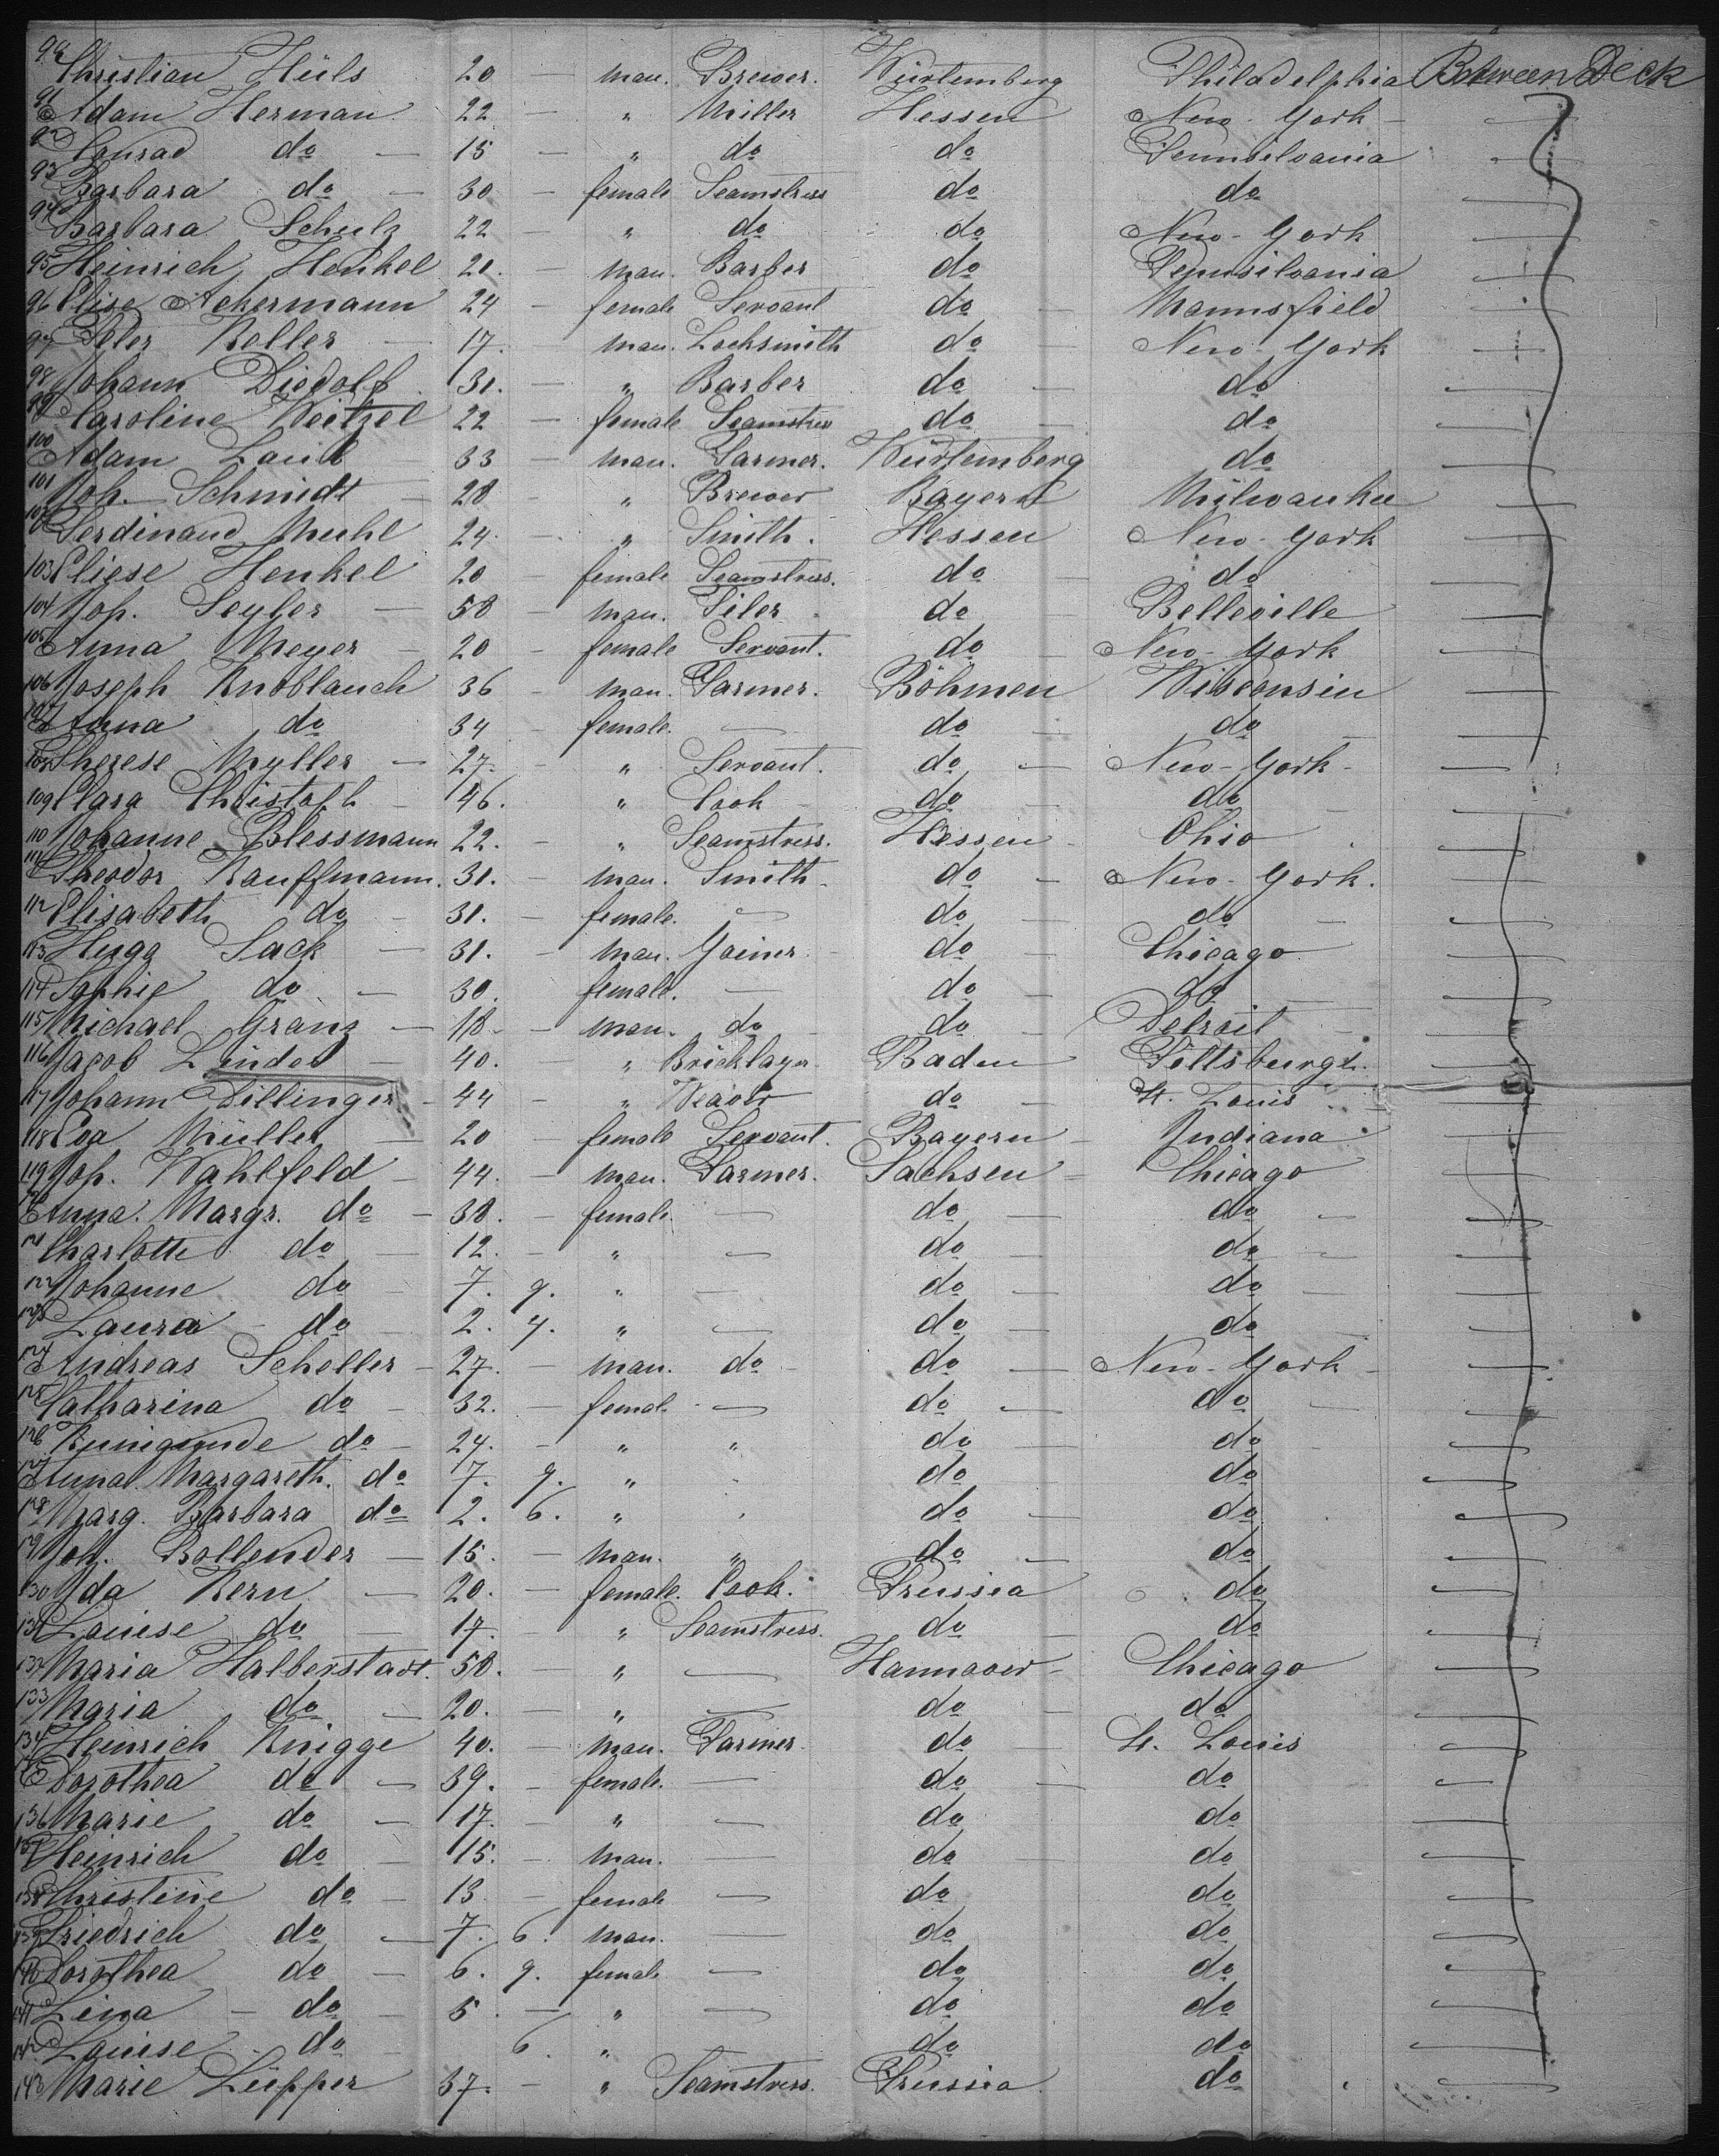 90 Christian Hüls 20 — man. Brewer. Würtemberg Philadelphia Between Deck
91 Adam Herman 22 — " Miller Hessen New-York —
92 Conrad do — 15 — " do do Pennsilvania
93 Barbara do — 30 — female Seamstress do do
94 Barbara Schulz 22 — " do do New-York
95 Heinrich Henkel 20. — man. Barber do Pennsilvania
96 Elise Ackermann 24 — female Servant do — Mannsfield
97 Peter Keller — 17. man. Locksmith do — New-York
98 Johann Diedolf 31. — " Barber do — do
99 Caroline Weitzel 22 — female Seamstress do — do
100 Adam Laub 33 — man. Farmer. Würtemberg do
101 Joh. Schmidt — 28 — " Brewer Bayern Milwaukee
102 Ferdinand Muhl 24. — " Smith. Hessen New-York
103 Eliese Henkel 20 — female Seamstress. do do
104 Joh. Seyler — 58 — man. Tiler do — Belleville
105 Anna Meyer — 20 — female Servant. do — New-York
106 Joseph Knoblauch 36 — man. Farmer. Böhmen Wisconsin
107 Anna do 34 female. — do — do —
108 Therese Myller — 27. — " Servant. do — New-York —
109 Clara Christoph — 46. " Cook do — do
110 Johanne Blessmann 22. — " Seamstress. Hessen Ohio
111 Theodor Kauffmann. 31. — man. Smith do — New-York.
112 Elisabeth do — 31. — female. — do — do —
113 Hugo Sack — 31. — man. Joiner do — Chicago
114 Sophie do — 30. female. — do — do
115 Michael Granz — 18. — man. do do — Detroit
116 Jacob Linder — 40. " Bricklayer Baden Pittsburgh.
117 Johann Dillinger — 44 — " Weaver do — St. Louis
118 Eva Müller — 20 — female Servant. Bayern — Indiana
119 Joh. Wahlfeld — 44. — man. Farmer. Sachsen — Chicago
120 Anna. Margr. do — 38. — female. — do — do —
121 Charlotte do — 12. — " — do — do —
122 Johanne do — 7. 9. " — do — do —
123 Laura — do — 2. 4. " — do — do —
124 Andreas Scheller — 27. — man. do — do — New-York —
125 Catharina do — 32. — female — do — do —
126 Kunigunde do — 24. — " " do — do
127 Anna Margareth. do 7. 9. " do — do
128 Marg. Barbara do 2. 6. " do — do
129 Joh. Bollender — 15. — man. " do — do
130 Ida Kern — 20. — female. Cook. Prussia do
131 Louise do — 17. — " Seamstress. do — do
132 Maria Halberstadt. 58. — " — Hannover — Chicago
133 Maria do — 20. — " — do — do
134 Heinrich Knigge 40. — man. Farmer do — St. Louis
Dorothea do — 39. — female. — do — do
136 Marie do — 17. — " — do do
137 Heinrich do — 15. — man. — do do
138 Christine do — 13 — female — do do
139 Friedrich do — 7. 6. man. — do do
140 Dorothea do — 6. 9. female — do do
141 Lina — do — 5. — " — do do
142 Louise do 6. " do do
143 Marie Lüpper 37. — " Seamstress. Prussia do